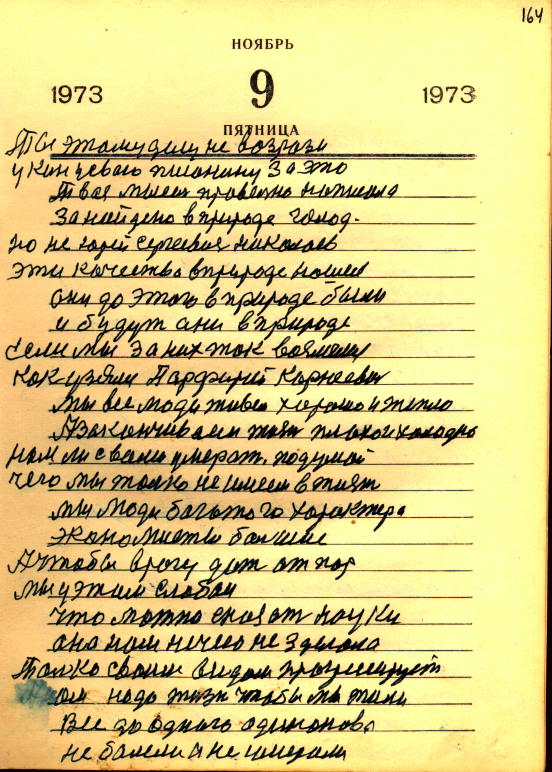 164
НОЯБРЬ
1973 9 1973
ПЯТНИЦА
Ты этому делу не возрази
у за это
Твоя мысля правельно написала
Занайдено в природе голод.
Но не Юрей Сергеевич Николаев
эти качества в природе нашел
они до этого в природе были
и будут они в природе
Если мы за них так возмем
как узяли Парфирий Корнеевич
Мы все люди живем хорошо и тепло
А заканчиваем жизн плохо и холодно
нам ли с вами умерат. подумай
чего мы только не имеем в жизн
мы люди богатого характера
экономисты болшие
А чтобы врагу дат отпор
мы у этим слабаи
что можно сказат науки
она нам ничего не зделала
Толко своим видом прогресирует
ом надо жизн чтобы мы жили
все до одного одинаково
не болели и не